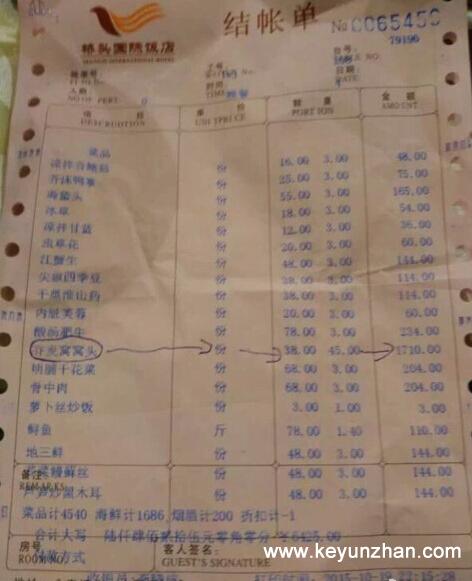 桥头国际饭店
结帐单
No 0065450
79190
台号
时间
日期
人数
NO OF PERT. 0
项目 单价 数量 金额
DESCRIDTION UNITPRICE PORTION AMOUNT
菜品
份 16.00 3.00 48.00
芥沫鸭掌 份 25.00 3.00 75.00
海蜇头 份 55.00 3.00 165.00
冰草 份 18.00 3.00 54.00
凉拌甘蓝 份 12.00 3.00 36.00
虫草花 份 20.00 3.00 60.00
江蟹生 份 48.00 3.00 144.00
尖椒四季豆 份 38.00 3.00 114.00
干煸淮山药 份 38.00 3.00 114.00
内脏芙蓉 份 20.00 3.00 60.00
酸汤肥牛 份 78.00 3.00 234.00
窝窝头 份 38.00 45.00 1710.00
干花菜 份 68.00 3.00 204.00
骨中肉 份 68.00 3.00 204.00
萝卜丝炒饭 份 3.00 1.00 3.00
鲜鱼 斤 78.00 1.40 110.00
地三鲜 份 48.00 3.00 144.00
鳗鲜丝 份 48.00 3.00 144.00
备注:
REMARKS
炒黑木耳 份 48.00 3.00 144.00
菜品计4540 海鲜计1686 烟酒计200 折扣计-1
合计大写 陆仟肆佰贰拾伍元零角零分 ¥6425.00
房号:
ROOM NO.
客人签名:
GUEST'S SIGNATURE
方式
www.keyunzhan.com